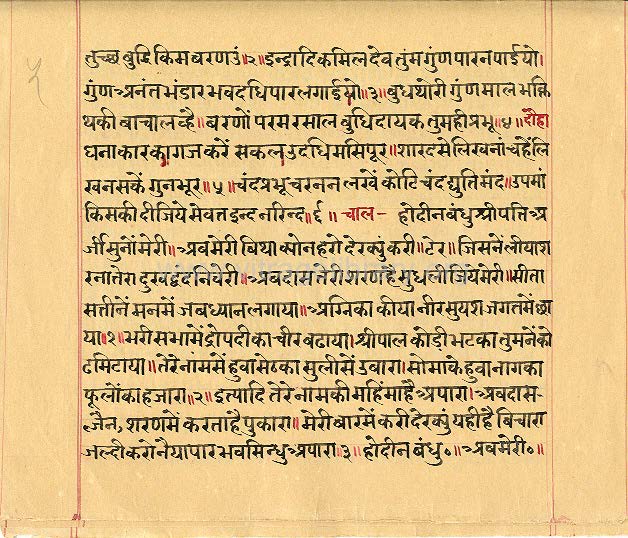 तुच्छ बुद्धि किम बरणउं॥२॥ इन्द्रादिक मिल देव तुंम गुंण पार न पाईयो।
गुंण अनंत भंडार भवदधि पार लगाईयो॥३॥ बुध थोरी गुंण माल भक्ति
थकी बाचाल व्है॥ बरणों परम रसाल बुधि दायक तुम ही प्रभू॥४॥ दौहा
घना कार कागज करें सकल उदधि मसि पूर॥ शारद से लिखनां चहें लि
ख न सकें गुन भूर॥५॥ चंद प्रभू चरनन लखें कोटि चंद द्युति मंद॥ उपमां
किस की दीजिये सेवत इन्द नरिन्द॥६॥ -चाल- हो दीन बंधु श्रीपति अ
र्जी सुनों मेरी॥ अब मेरी बिथा क्यो न हरो देर क्युं करी॥ टेर॥ जिसनें लीया श
रना तेरा दुख द्वंद निवेरी॥ अब दास तेरी शरण है सुध लीजिये मेरी॥ सीता
सती नें मन में जब ध्यान लगाया॥ अग्नि का कीया नीर सुयश जगत में छा
या॥१॥ भरी सभा में द्रोपदी का चीर बढाया। श्रीपाल कोड़ी भट का तुमनें को
ढ मिटाया॥ तेरे नाम सें हुवा सेठ का सुली सें उबारा। सोमा के हुवा नाग का
फूलों का हजारा॥२॥ इत्यादि तेरे नाम की महिंमा है अपारा। अब दास-
जैन, शरण में करता है पुकारा॥ मेरी बार में करी देर क्युं यही है बिचारा
जल्दी करो नैया पार भव सिन्धु अपारा॥३॥ हो दीन बंधु०॥ अब मेरी०॥
५